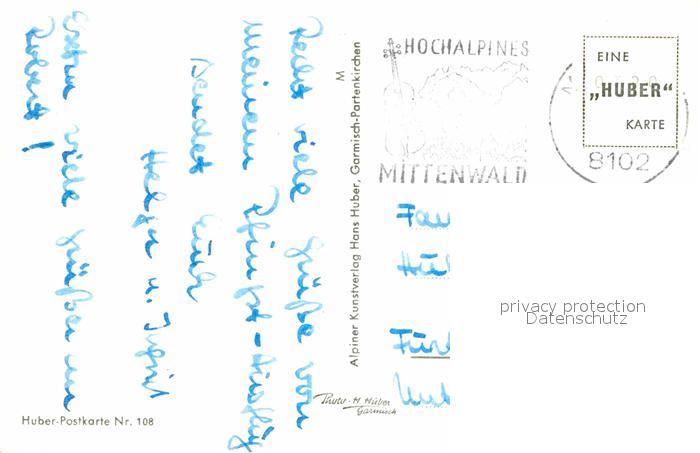 Recht viele Grüße von
meinem Pfingst-Ausflug
sendet Euch
Helga u. Ingrid
Extra viele Grüße an
Robert!
Huber-Postkarte Nr. 108
M
Alpiner Kunstverlag Hans Huber, Garmisch-Partenkirchen
Photo-H. Huber
Garmisch
HOCHALPINES
MITTENWALD
8102
EINE
„HUBER“
KARTE
Fam
privacy protection
Datenschutz